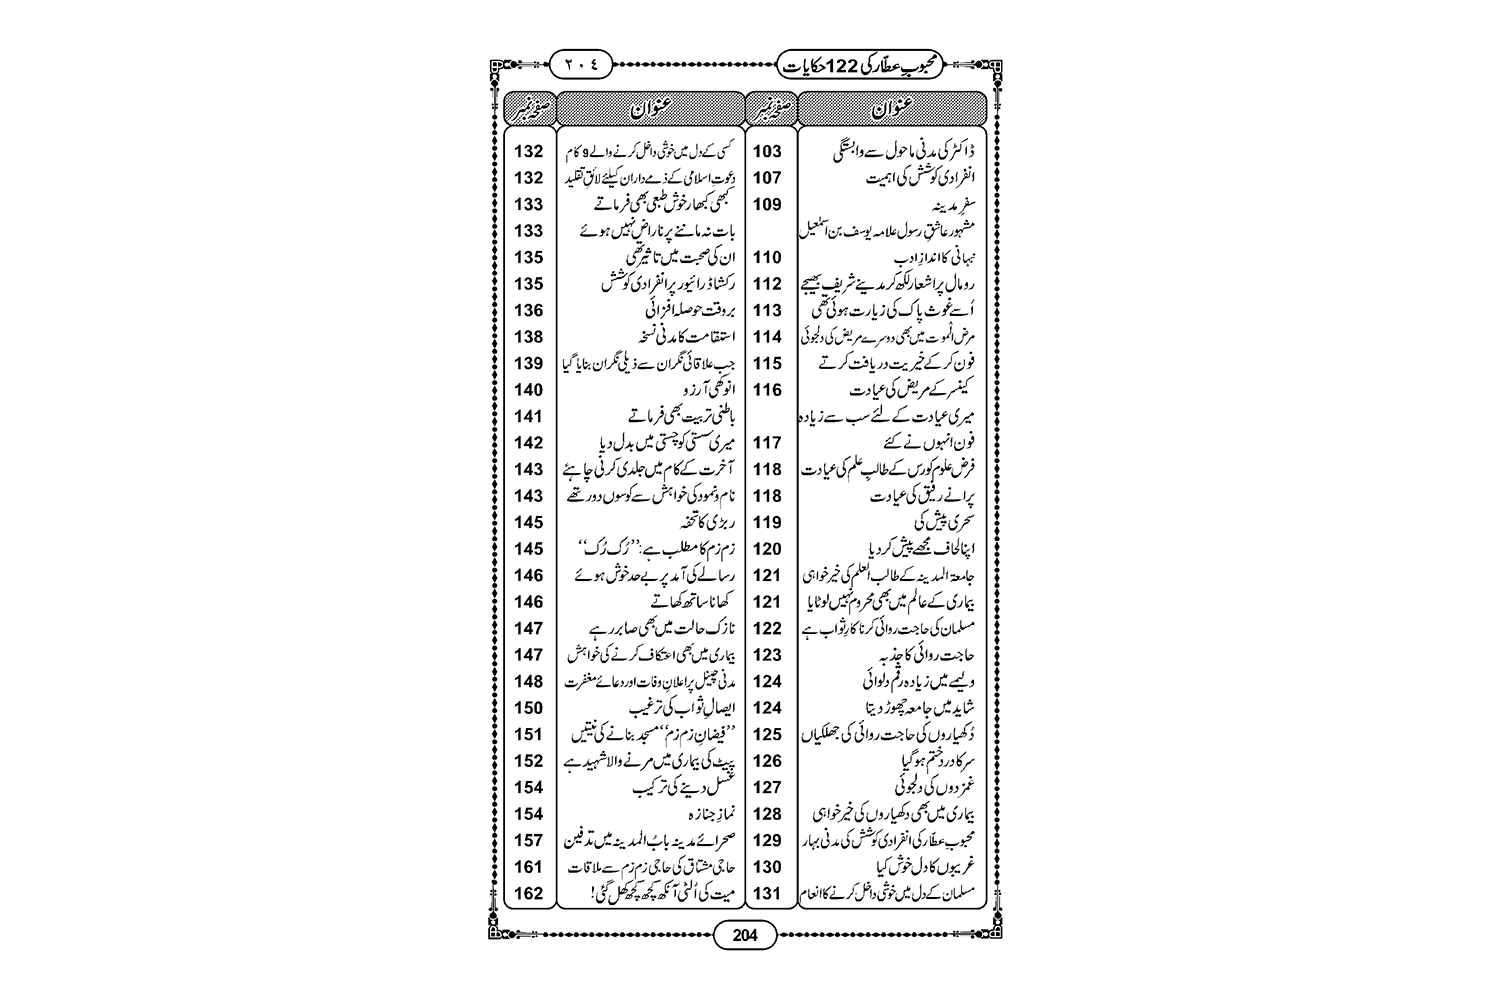 محبوبِ عطّار کی 122 حکایات
٢٠٤
عنوان صفحہ نمبر
ڈاکٹر کی مدنی ماحول سے وابستگی 103
انفرادی کوشش کی اہمیت 107
سفرِ مدینہ 109
مشہور عاشقِ رسول علامہ یوسف بن اسمٰعیل
نبہانی کا اندازِ ادب 110
رومال پر اشعار لکھ کر مدینے شریف بھیجے 112
اُسے غوث پاک کی زیارت ہوئی تھی 113
مرض الموت میں بھی دوسرے مریض کی دلجوئی 114
فون کر کے خیریت دریافت کرتے 115
کینسر کے مریض کی عیادت 116
میری عیادت کے لئے سب سے زیادہ
فون انہوں نے کئے 117
فرض علوم کورس کے طالبِ علم کی عیادت 118
پرانے رفیق کی عیادت 118
سحری پیش کی 119
اپنا لحاف مجھے پیش کر دیا 120
جامعۃ المدینہ کے طالب العلم کی خیر خواہی 121
بیماری کے عالم میں بھی محروم نہیں لوٹایا 121
مسلمان کی حاجت روائی کرنا کارِ ثواب ہے 122
حاجت روائی کا جذبہ 123
ولیمے میں زیادہ رقم دلوائی 124
شاید میں جامعہ چھوڑ دیتا 124
دُکھیاروں کی حاجت روائی کی جھلکیاں 125
سر کا درد ختم ہو گیا 126
غمزدوں کی دلجوئی 127
بیماری میں بھی دکھیاروں کی خیر خواہی 128
محبوبِ عطّار کی انفرادی کوشش کی مدنی بہار 129
غریبوں کا دل خوش کیا 130
مسلمان کے دل میں خوشی داخل کرنے کا انعام 131
عنوان صفحہ نمبر
کسی کے دل میں خوشی داخل کرنے والے 9 کام 132
دعوتِ اسلامی کے ذمے داران کیلئے لائقِ تقلید 132
کبھی کبھار خوش طبعی بھی فرماتے 133
بات نہ ماننے پر ناراض نہیں ہوئے 133
ان کی صحبت میں تاثیر تھی 135
رکشا ڈرائیور پر انفرادی کوشش 135
بروقت حوصلہ افزائی 136
استقامت کا مدنی نسخہ 138
جب علاقائی نگران سے ذیلی نگران بنایا گیا 139
انوکھی آرزو 140
باطنی تربیت بھی فرماتے 141
میری سستی کو چستی میں بدل دیا 142
آخرت کے کام میں جلدی کرنی چاہئے 143
نام و نمود کی خواہش سے کوسوں دور تھے 143
ربڑی کا تحفہ 145
زم زم کا مطلب ہے: ’’رُک رُک‘‘ 145
رسالے کی آمد پر بے حد خوش ہوئے 146
کھانا ساتھ کھاتے 146
نازک حالت میں بھی صابر رہے 147
بیماری میں بھی اعتکاف کرنے کی خواہش 147
مدنی چینل پر اعلانِ وفات اور دعائے مغفرت 148
ایصالِ ثواب کی ترغیب 150
’’فیضانِ زم زم‘‘ مسجد بنانے کی نیتیں 151
پیٹ کی بیماری میں مرنے والا شہید ہے 152
غسل دینے کی ترکیب 154
نمازِ جنازہ 154
صحرائے مدینہ بابُ المدینہ میں تدفین 157
حاجی مشتاق کی حاجی زم زم سے ملاقات 161
میت کی اُلٹی آنکھ کچھ کچھ کھل گئی! 162
204